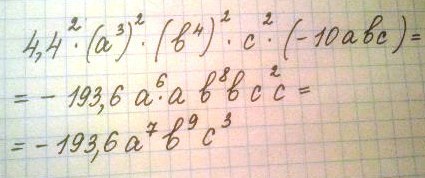 4,4² · (a³)² · (b⁴)² · c² · (-10abc) =
= - 193,6 a⁶ · a b⁸ b c² c =
= - 193,6 a⁷ b⁹ c³